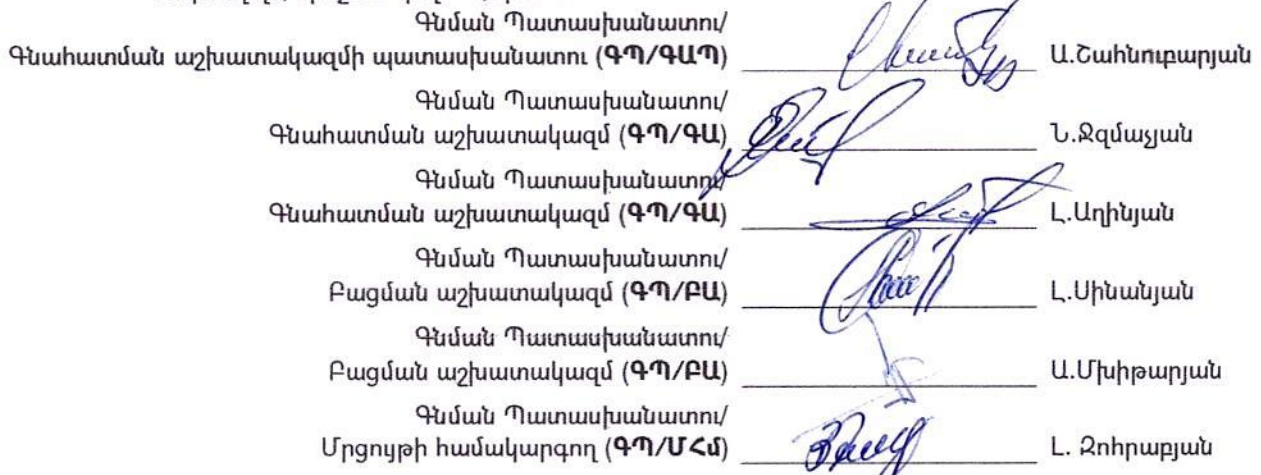 Գնման Պատասխանատու/
Գնահատման աշխատակազմի պատասխանատու (ԳՊ/ԳԱՊ) Ա.Շահնուբարյան
Գնման Պատասխանատու/
Գնահատման աշխատակազմ (ԳՊ/ԳԱ) Ն.Ջզմաչյան
Գնման Պատասխանատու/
Գնահատման աշխատակազմ (ԳՊ/ԳԱ) Լ.Աղինյան
Գնման Պատասխանատու/
Բացման աշխատակազմ (ԳՊ/ԲԱ) Լ.Սինանյան
Գնման Պատասխանատու/
Բացման աշխատակազմ (ԳՊ/ԲԱ) Ա.Մխիթարյան
Գնման Պատասխանատու/
Մրցույթի համակարգող (ԳՊ/ՄՀմ) Լ. Զոհրաբյան